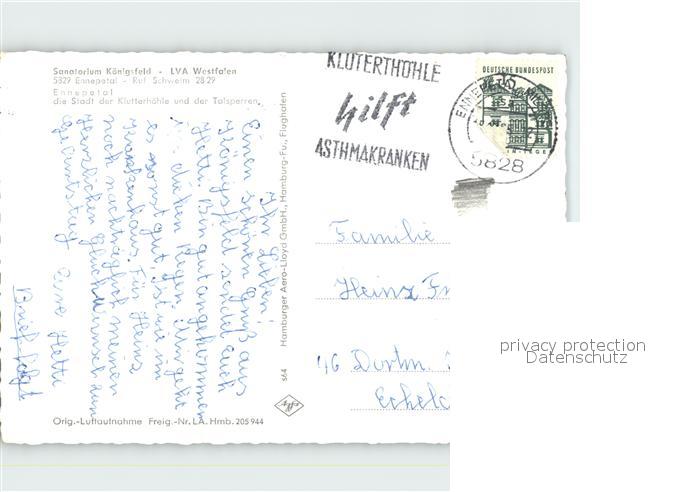 Sanatorium Königsfeld - LVA Westfalen
5829 Ennepetal - Ruf Schwelm 28 29
Ennepetal
die Stadt der Klutterhöhle und der Talsperren
KLUTERTHÖHLE
hilft
ASTHMAKRANKEN
DEUTSCHE BUNDESPOST
5828
Ihr Lieben!
Einen schönen Gruß aus
Königsfeld sendet euch
Hetti. Bin gut angekommen
dichten Regen.
es sonst gut, ist wie im
Krankenhaus. Für Heinz
noch nachträglich meinen
herzlichen Glückwunsch zum
Geburtstag Eure Hetti
Brief folgt
Hamburger Aero-Lloyd GmbH., Hamburg-Fu., Flughafen
s64
Familie
Heinz Fr
46 Dortm.
Orig.-Luftaufnahme Freig.-Nr. L.A. Hmb. 205 944
privacy protection
Datenschutz